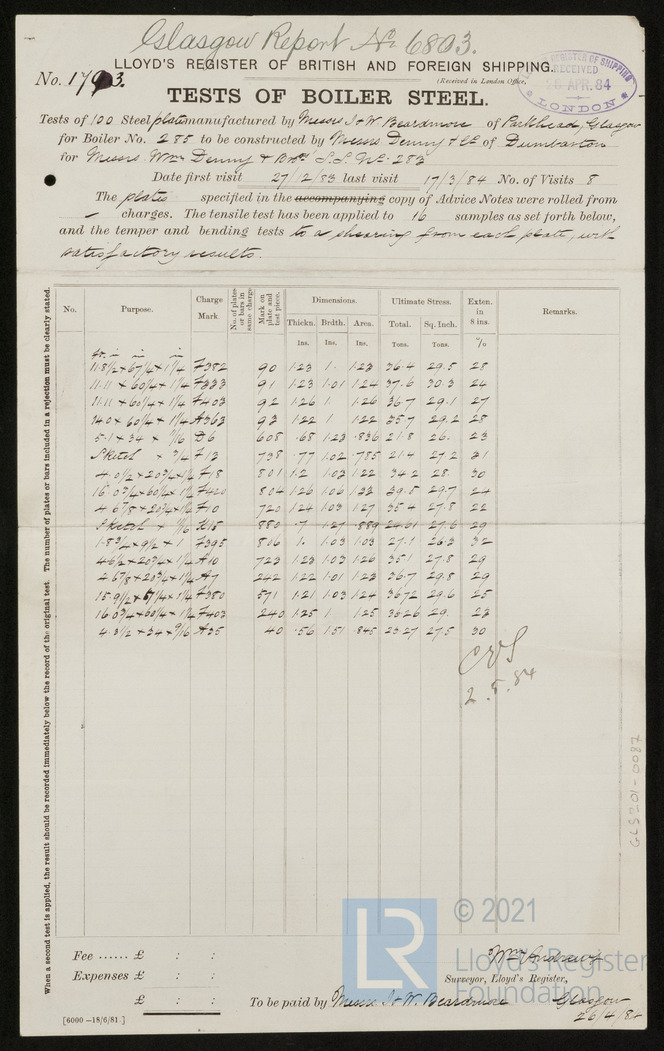 Glasgow Report No 6803.
LLOYD'S REGISTER OF BRITISH AND FOREIGN SHIPPING.
No. 1793.
(Received in London Office,
REGISTER OF SHIPPING
RECEIVED
APR. 84
LONDON
TESTS OF BOILER STEEL.
Tests of 100 Steel plates manufactured by Messrs J & W Beardmore of Parkhead, Glasgow
for Boiler No. 285 to be constructed by Messrs Denny & Co of Dumbarton
for Messrs Wm Denny & Bros S.S. No 283
Date first visit 27/12/83 last visit 17/3/84 No. of Visits 8
The plates specified in the accompanying copy of Advice Notes were rolled from
charges. The tensile test has been applied to 16 samples as set forth below,
and the temper and bending tests to a shearing from each plate, with
satisfactory results.
When a second test is applied, the result should be recorded immediately below the record of the original test. The number of plates or bars included in a rejection must be clearly stated.
No. Purpose. Charge Mark. No. of plates or bars in same charge Mark on plate and test piece. Dimensions. Ultimate Stress. Exten. in 8 ins. Remarks.
Thickn. Brdth. Area. Total. Sq. Inch.
Ins. Ins. Ins. Tons. Tons. %
11.8 1/2 × 67 1/4 × 1 1/4 F382 90 1.23 1. 1.23 36.4 29.5 28
11.11 × 60 1/4 × 1 1/4 F333 91 1.23 1.01 1.24 37.6 30.3 24
11.11 × 60 1/4 × 1 1/4 F403 92 1.26 1 1.26 36.7 29.1 27
14.0 × 60 1/4 × 1 1/4 A363 93 1.22 1 1.22 35.7 29.2 28
5.1 × 34 × 11/16 D6 608 .68 1.23 .836 21.8 26. 23
Sketch × 3/4 F13 738 .77 1.02 .785 21.4 27.2 31
4.0 1/2 × 20 3/4 × 1 1/4 F18 801 1.2 1.02 1.22 34.2 28. 30
16.0 3/4 × 60 1/4 × 1 1/4 F420 804 1.26 1.06 1.33 39.5 29.7 24
4.6 7/8 × 20 3/4 × 1 1/4 F10 720 1.24 1.03 1.27 35.4 27.8 22
Sketch × 11/16 K18 880 .7 1.27 .889 24.61 27.6 29
1.8 3/4 × 9 1/2 × 1 F395 806 1. 1.03 1.03 27.1 26.3 32
4.6 1/2 × 20 3/4 × 1 1/4 A10 723 1.23 1.03 1.26 35.1 27.8 29
2.6 7/8 × 20 3/4 × 1 1/4 A7 242 1.22 1.01 1.23 36.7 29.8 29
15.9 1/2 × 67 1/4 × 1 1/4 F380 571 1.21 1.03 1.24 36.72 29.6 25
16.0 3/4 × 60 1/4 × 1 1/4 F403 240 1.25 1 1.25 36.26 29. 23
4.3 1/2 × 34 × 9/16 A35 40 .56 1.51 .845 23.27 27.5 30
2.5.84
GLS201-0087
Fee ...... £ : :
Expenses £ : :
£ : :
Wm Andrews
Surveyor, Lloyd's Register,
To be paid by Messrs J & W. Beardmore Glasgow
26/4/84
[6000—18/6/81.]
LR
© 2021
Lloyd's Register
Foundation